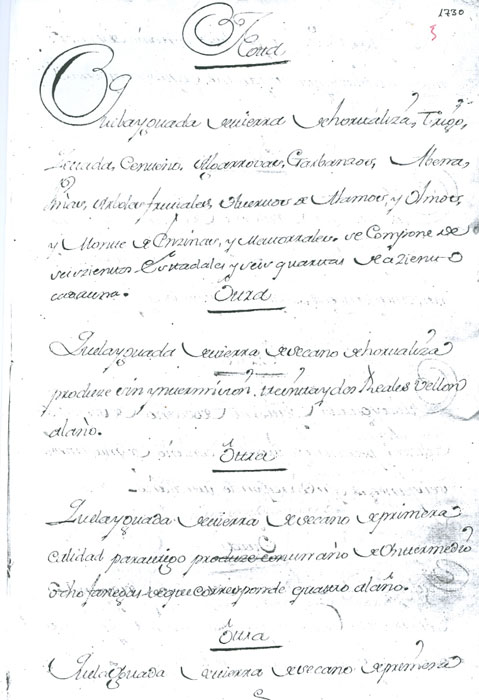 1730
3
Nota
Que la yguada de tierra de hortaliza, Trigo,
Zevada, Centeno, Algarrovas, Garbanzos, Abena,
Viñas, Arboles frutales, Plantios de Alamos, y Olmos,
y Monte de Enzinas, y Matorrales. se Compone de
seiszientos Estadales, y seis quartas de a ziento
cada una.
Otra
Que la yguada de tierra de secano de hortaliza
produze sin yntermision, treinta y dos Reales Vellon
al año.
Otra
Que la yguada de tierra de secano de primera
Calidad para trigo produze con un año de Yntermedio
ocho fanegas de que corresponde quatro al año.
Otra
Que la yguada de tierra de secano de primera